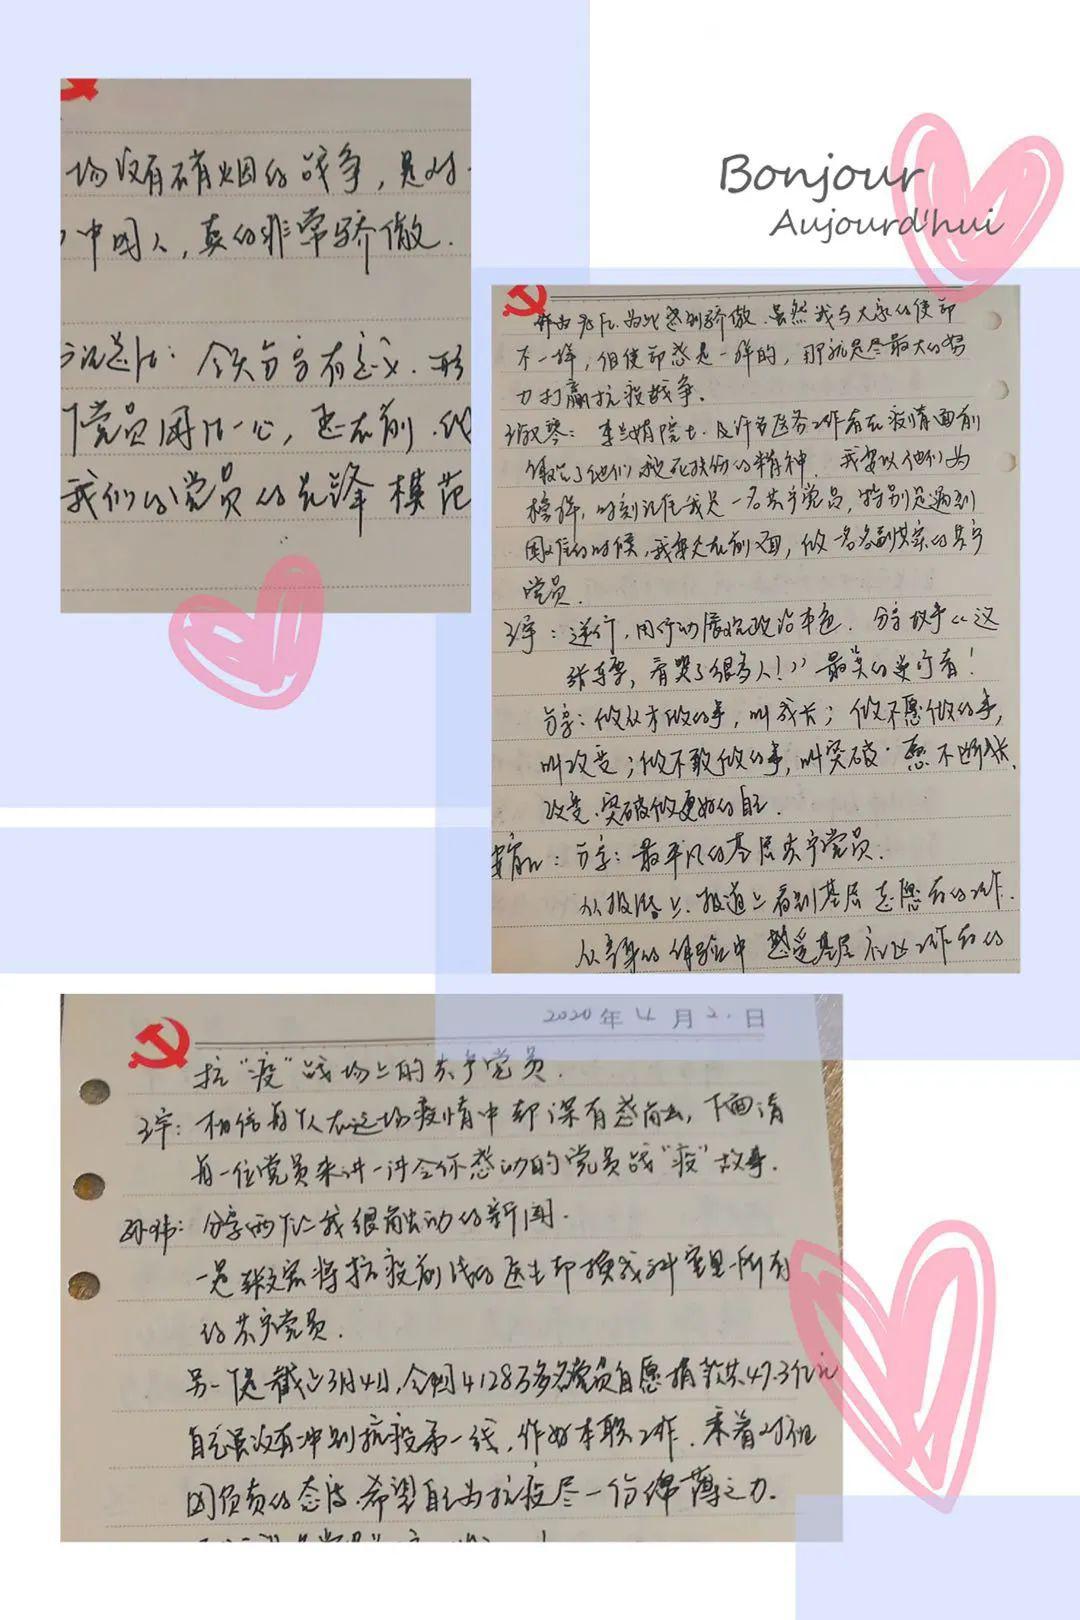 场没有硝烟的战争，是对
中国人，真的非常骄傲.
今天分享有意义.形
党员团结一心，走在前.
我们的党员的先锋模范
Bonjour
Aujourd'hui
为此感到骄傲.虽然我与大家的使命
不一样，但使命感是一样的，那就是尽最大的努
力打赢抗疫战争.
李兰娟院士.及许多医务工作者在疫情面前
他们救死扶伤的精神.我要以他们为
榜样，时刻记住我是一名共产党员，特别是遇到
困难的时候，我要走在前面，做一名名副其实的共产
党员.
王宇：逆行，用行动展现政治本色.分享故事《这
张车票，看哭了很多人！》最美的逆行者！
分享：做从未做的事，叫成长；做不愿做的事，
叫改变；做不敢做的事，叫突破.愿不断成长.
改变.突破做更好的自己.
分享：最平凡的基层共产党员.
从报纸上.报道上看到基层志愿者的工作.
从亲身的体验中感受基层社区工作者的
2020年4月2.日
抗“疫”战场上的共产党员.
王宇：相信每个人在这场疫情中都深有感触，下面请
每一位党员来讲一讲令你感动的党员战“疫”故事.
孙炜：分享两个让我很触动的新闻.
一是张文宏将抗疫前线的医生都换成科室里所有
的共产党员.
另一个是截止3月4日，全国4128万多名党员自愿捐款共47.3亿元
自己虽没有冲到抗疫第一线，作好本职工作.秉着对祖
国负责的态度.希望自己为抗疫尽一份绵薄之力.